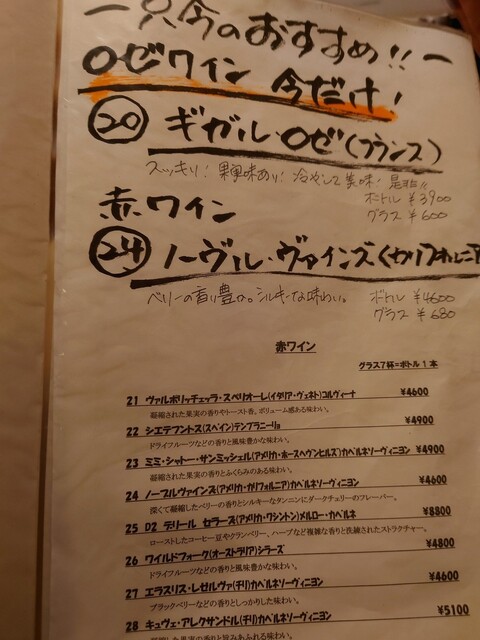 一只今のおすすめ!!一
ロゼワイン 今だけ!
⑳ ギガル・ロゼ(フランス)
スッキリ!果実味あり!冷やして美味!是非!!
ボトル ¥3900
グラス ¥600
赤ワイン
㉔ ノーヴル・ヴァインズ(カリフォルニア
ベリーの香り豊か。シルキーな味わい。
ボトル ¥4600
グラス ¥680
赤ワイン
グラス7杯=ボトル1本
21 ヴァルポリッチェッラ・スペリオーレ(イタリア・ヴェネト)コルヴィーナ ¥4600
凝縮された果実の香りやトースト香。ボリューム感ある味わい。
22 シエテフントス(スペイン)テンプラニーリョ ¥4900
ドライフルーツなどの香りと風味豊かな味わい。
23 ミミ・シャトー・サンミッシェル(アメリカ・ホースヘヴンヒルズ)カベルネソーヴィニヨン ¥4900
凝縮された果実の香りとふくらみのある味わい。
24 ノーブルヴァインズ(アメリカ・カリフォルニア)カベルネソーヴィニヨン ¥4600
深くて凝縮したベリーの香りとシルキーなタンニンにダークチェリーのフレーバー。
25 D2 デリール セラーズ(アメリカ・ワシントン)メルロー・カベルネ ¥8800
ローストしたコーヒー豆やクランベリー、ハーブなど複雑な香りと洗練されたストラクチャー。
26 ワイルドフォーク(オーストラリア)シラーズ ¥4800
ドライフルーツなどの香りと風味豊かな味わい。
27 エラスリス・レゼルヴァ(チリ)カベルネソーヴィニヨン ¥4600
ブラックベリーなどの香りとしっかりした味わい。
28 キュヴェ・アレクサンドル(チリ)カベルネソーヴィニヨン ¥5100
凝縮した果実の香りと旨みあふれる味わい。